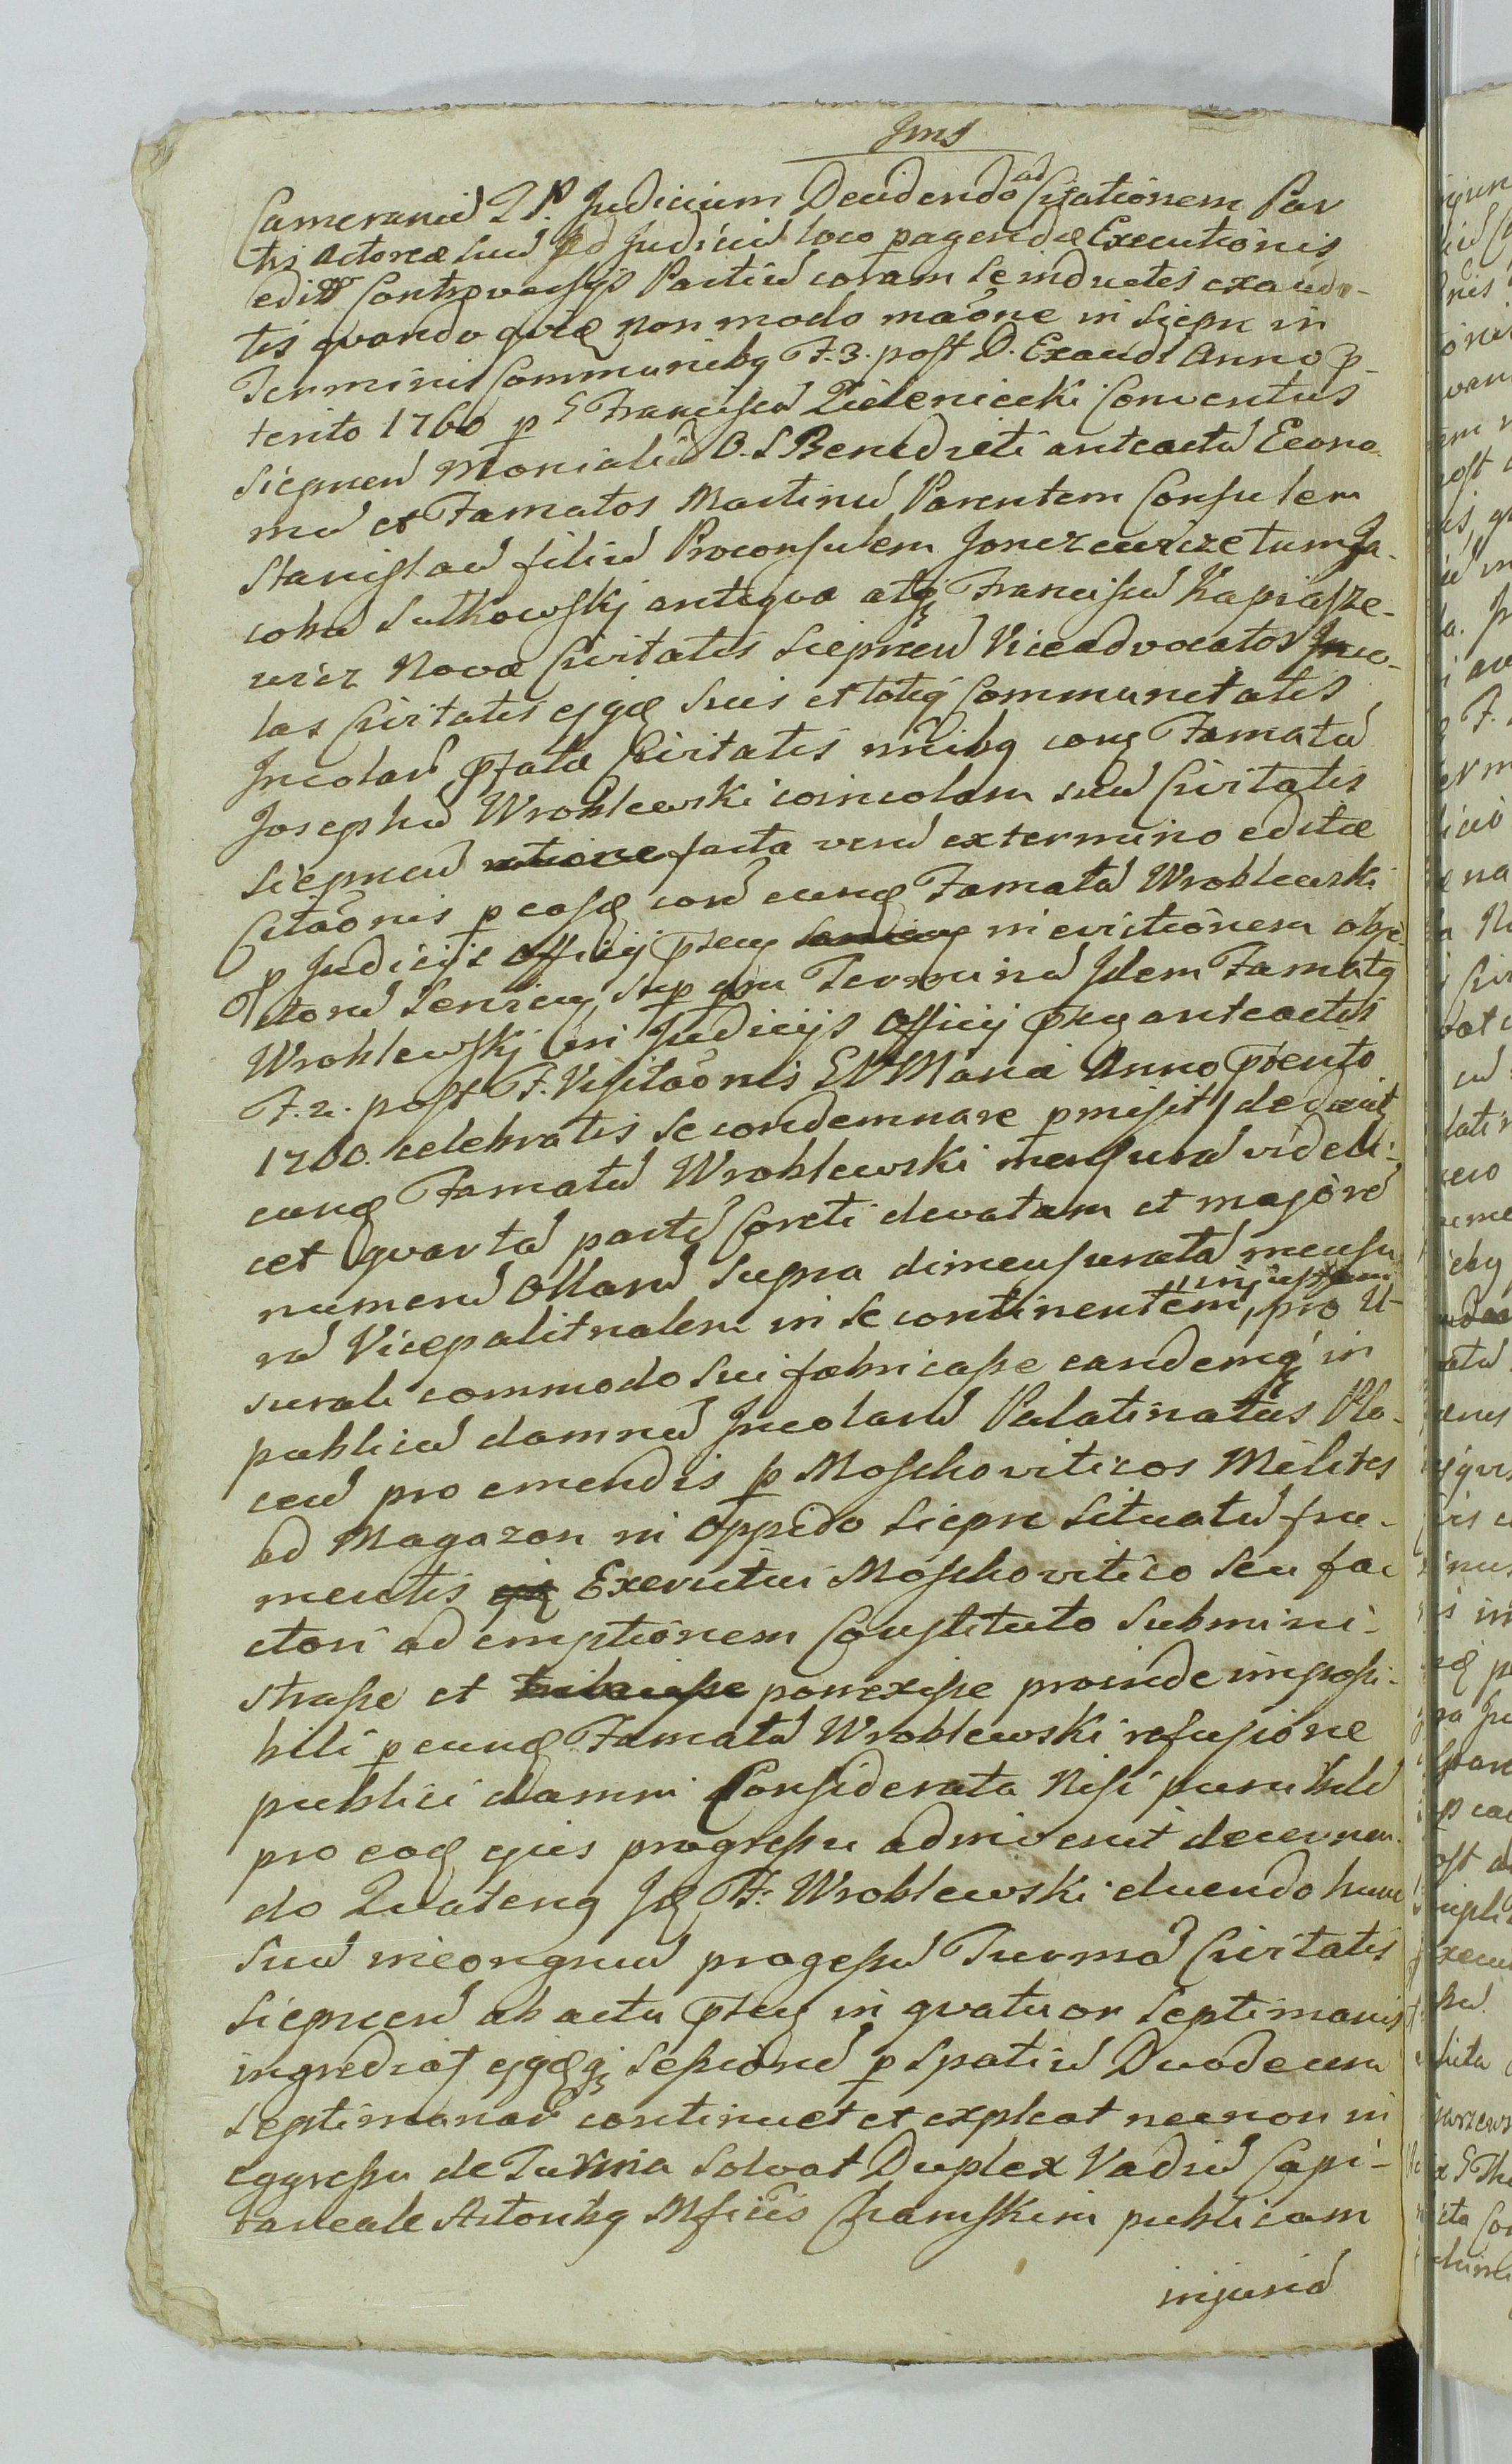 Jms
Cameranũ T. P. Judicium Decidendo ad Citationem Par
tis Actoreæ suũ Judiciũ loco pagendæ Executionis
edit Controversijs Partiũ coram se inductis exaudi-
tis quando quidẽ non modo mãone in Siepn in
Terminis Communibq F. 3. post D. Exaudi Anno p-
terito 1760 p G Franciscũ Zieleniecki Conventus
Siepnen Monialiũ O. S Benedicti anteactũ Econo-
mũ et Famatos Martinũ Parentem Consulem
Stanislaũ filiũ Proconsulem tum Ja-
cobũ Sutkowskj antiqua atq Franciscũ Kapiasze-
wicz Nova Civitatis Siepnen Viceadvocatos Inco-
las Civitatis ejqdẽ suis et totiq Communitatis
Incolarũ pfatæ Civitatis nõibq conq Famatũ
Josephũ Wroblewski coincolam suũ Civitatis
Siepnen facta verũ ex termino editæ
Citaõnis p eosdẽ conã eundẽ Famatũ Wroblewski
p Judicijs Officij pseuq in evictionem obje-
ctorũ Terminũ Idem Famatq
Wroblewskj in Judicijs Officij pseuq anteactis
F. 2. post F. Visitaõnis B V Mariæ Anno pterito
1760. celebratis se condemnare pmisit deduxit
eundẽ Famatũ Wroblewski mensurã videli-
cet quarta partẽ Coreti elevatam et majorẽ
numerũ Ollarũ supra dimensuratã mensu
rã Vicepalitnalem in se continentem, injustam pro u-
surali commodo sui fabricasse eandemq in
publicũ damnũ Incolarũ Palatinatus Plo-
cen pro emendis p Moschoviticos Milites
ad Magazon in Oppido Siepn situatũ fru-
mentis Exercitui Moschovitico seu fa-
ctori ad emptionem Constituto submini-
strasse et porrexisse proinde impossi-
bili p eundẽ Famatũ Wroblewski refusione
publici damni Considerata Nisi punibilẽ
pro eodẽ ejus progressu adinvenit decernen-
do Quatenq Idẽ F. Wroblewski luendo hunc
suũ incongruũ progessũ Turmã Civitatis
Siepncen ab actu pseuq in quatuor septimanis
ingrediat ejqdẽq sessionẽ p spatiũ Duodecem
septimanarũ continuet et expleat necnon in
eggressu de Turma solvat Duplex Vadiũ Capi-
taneale Actoribq Mficis Chamskim publicam
injuriã